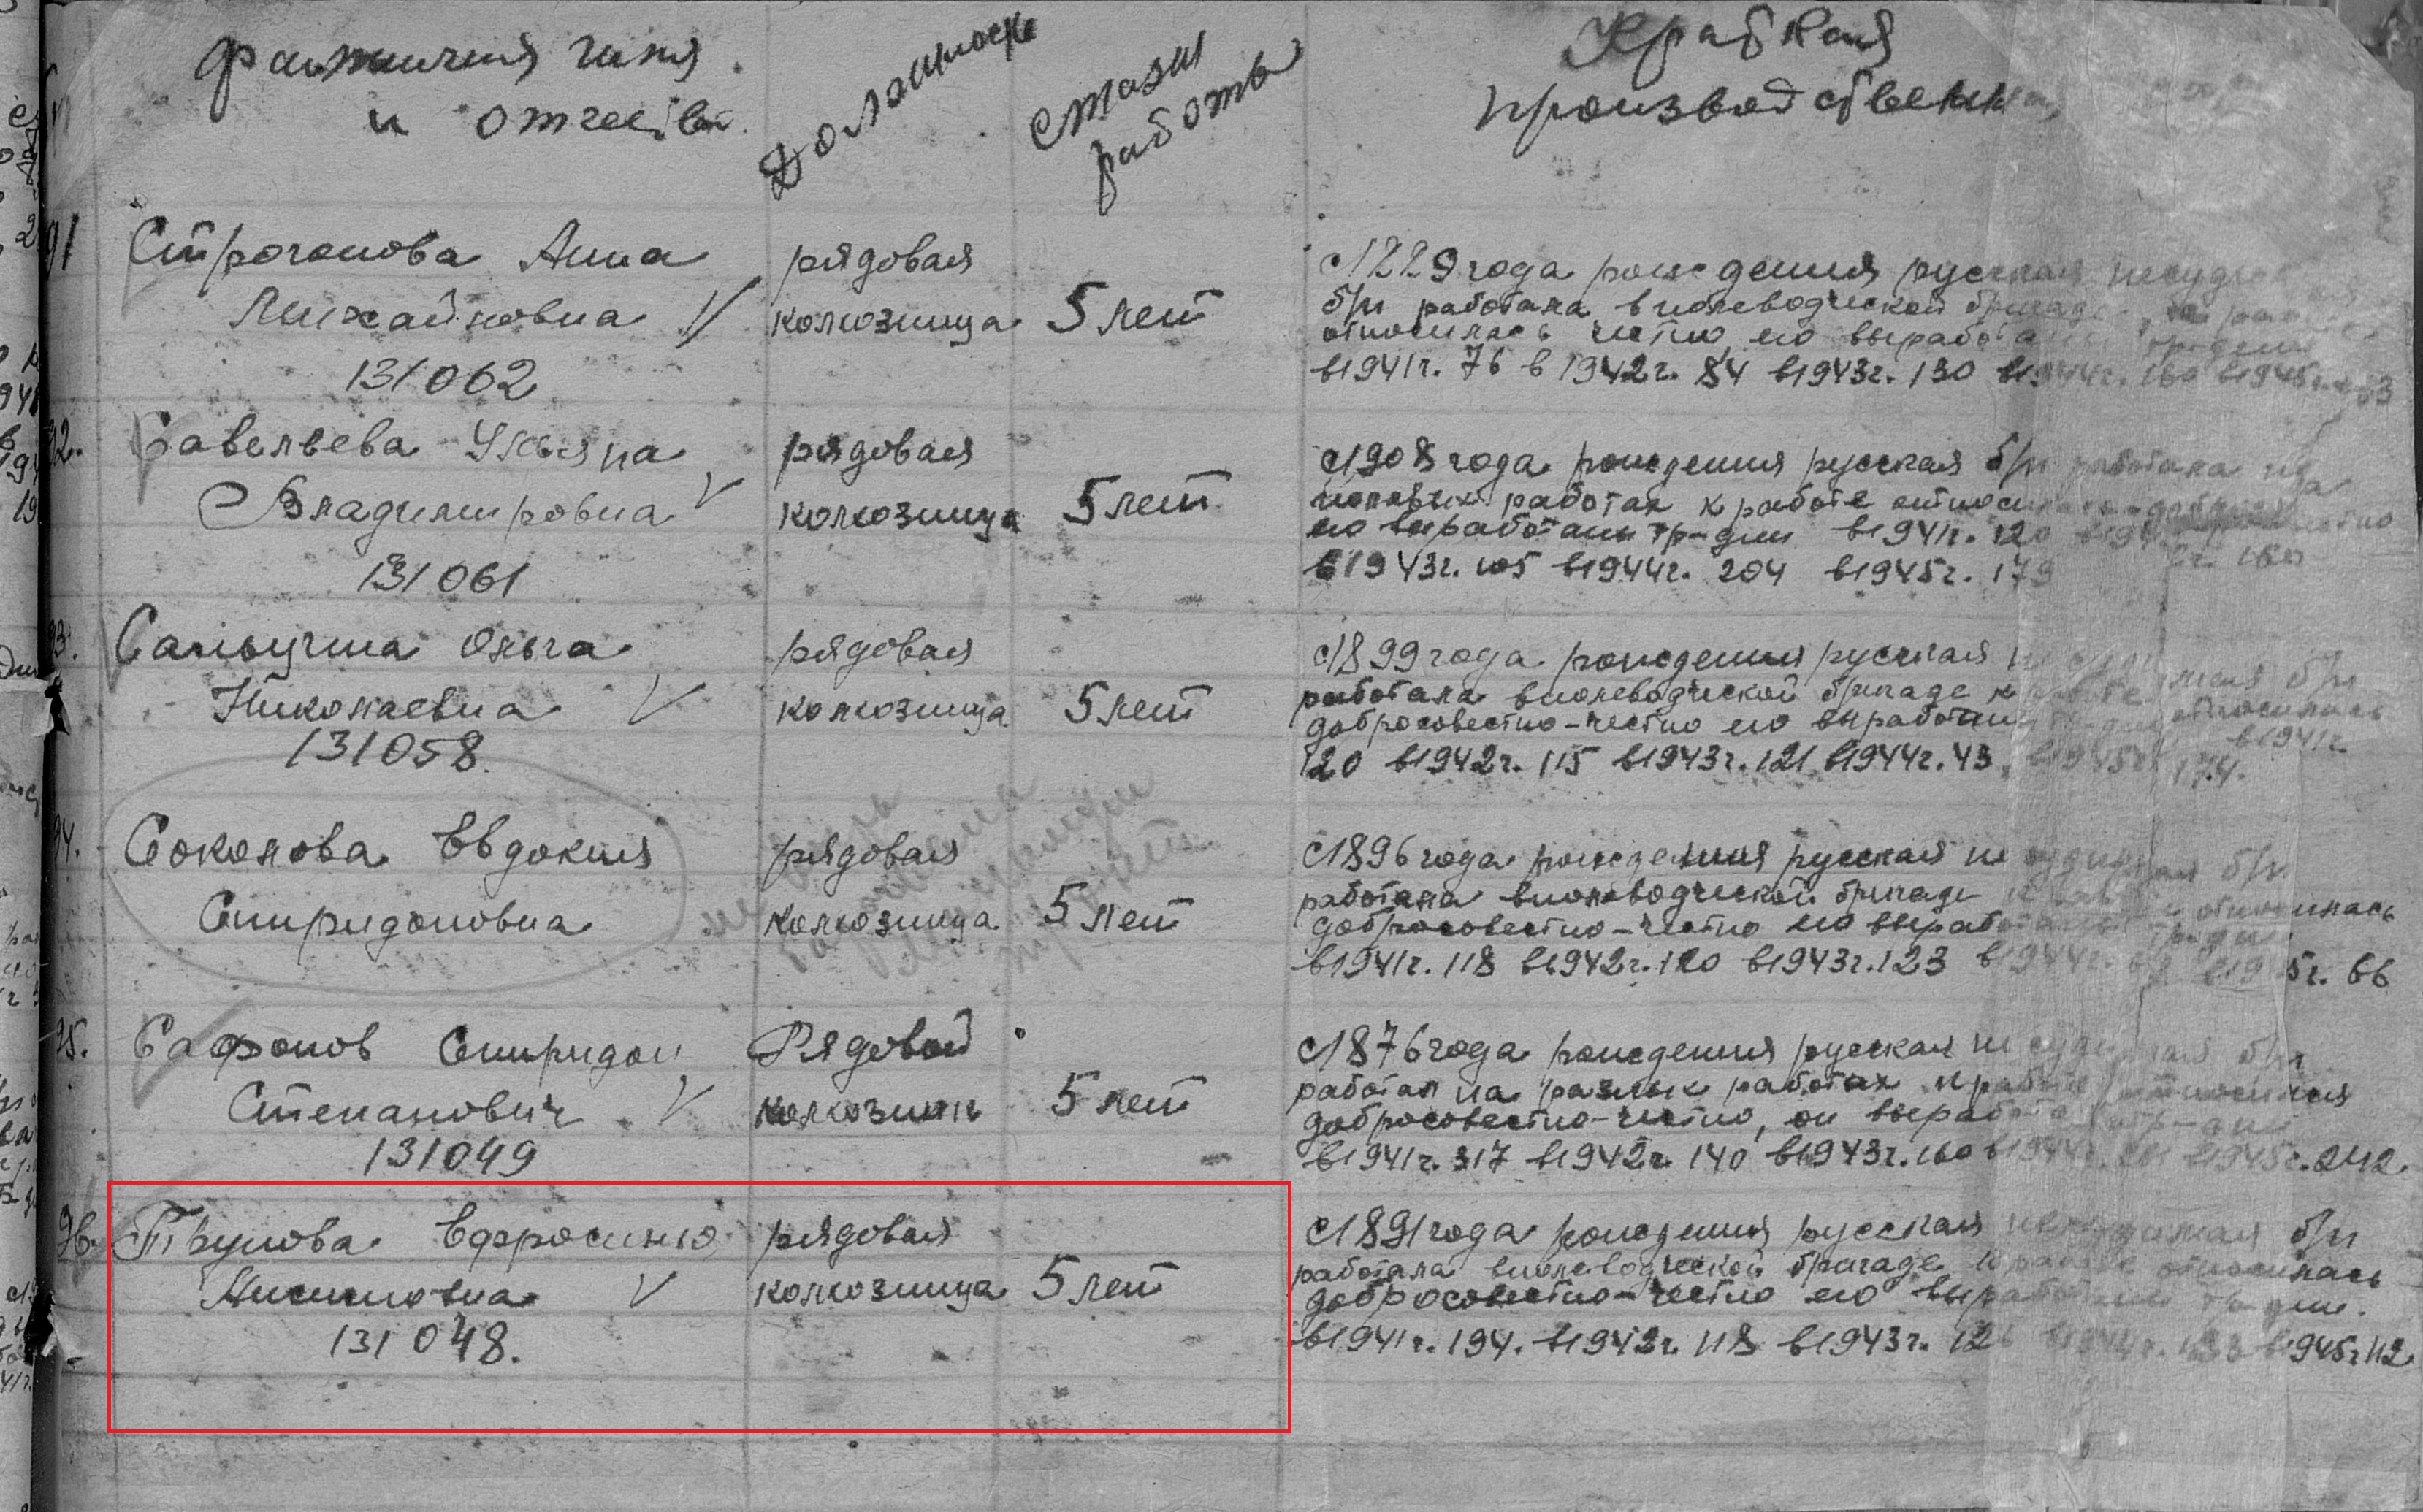 Фамилия имя
и отчество
Должность
стаж
работы
Краткая
производственная
91
Строганова Анна
Михайловна V
131062
рядовая
колхозница
5 лет
с 1229 года рождения русская несуд
б/п работала в полеводческой бригаде
относилась честно ею выработано
в 1941 г. 76 в 1942 г. 84 в 1943 г. 130 в 1944 г. 160 в 1945 г.
92.
Савельева Ульяна
Владимировна V
131061
рядовая
колхозница
5 лет
с 1908 года рождения русская б/п работала на
работах к работе
ею выработаны тр-дни в 1941 г. 120
в 1943 г. 105 в 1944 г. 204 в 1945 г. 179
93.
Ольга
Николаевна V
131058
рядовая
колхозница
5 лет
с 1899 года рождения русская б/п
работала в полеводческой бригаде к работе относилась
добросовестно-честно ею выработаны в 1941 г.
120 в 1942 г. 115 в 1943 г. 121 в 1944 г. 43, в 1945 г. 174.
94.
Соколова Евдокия
Спиридоновна
рядовая
колхозница
5 лет
с 1896 года рождения русская не судимая б/п
работала в полеводческой бригаде к работе относилась
добросовестно-честно ею выработаны
в 1941 г. 118 в 1942 г. 120 в 1943 г. 123 в 1944 г. в 1945 г. 66
95.
Сафонов Спиридон
Степанович V
131049
Рядовой
колхозник
5 лет
с 1876 года рождения русская не судимая б/п
работал на разных работах к работе относился
добросовестно-честно, он выработал тр-дни
в 1941 г. 317 в 1942 г. 140 в 1943 г. 160 в 1944 г. в 1945 г. 242.
96.
Трунова Ефросинью
Анисимовна V
131048.
рядовая
колхозница
5 лет
с 1891 года рождения русская несудимая б/п
работала в полеводческой бригаде к работе относилась
добросовестно-честно ею выработаны тр-дни.
в 1941 г. 194. в 1942 г. 118 в 1943 г. в 1944 г. в 1945 г. 112